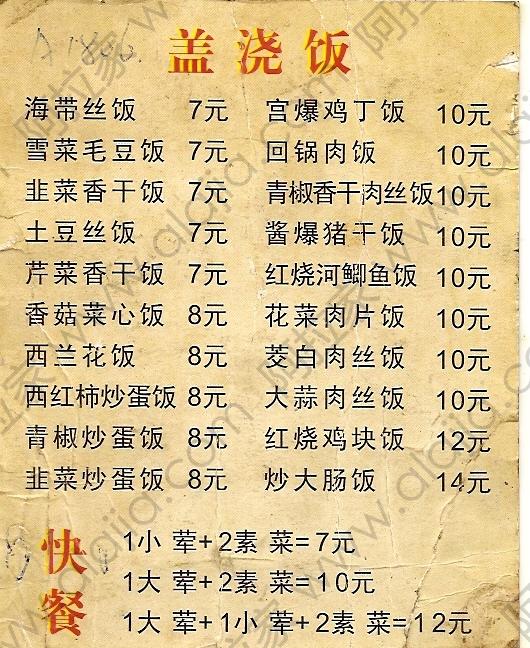 A1800.
盖浇饭
海带丝饭 7元 宫爆鸡丁饭 10元
雪菜毛豆饭 7元 回锅肉饭 10元
韭菜香干饭 7元 青椒香干肉丝饭 10元
土豆丝饭 7元 酱爆猪干饭 10元
芹菜香干饭 7元 红烧河鲫鱼饭 10元
香菇菜心饭 8元 花菜肉片饭 10元
西兰花饭 8元 茭白肉丝饭 10元
西红柿炒蛋饭 8元 大蒜肉丝饭 10元
青椒炒蛋饭 8元 红烧鸡块饭 12元
韭菜炒蛋饭 8元 炒大肠饭 14元
快餐
1小 荤+2素 菜=7元
1大 荤+2素 菜=10元
1大 荤+1小 荤+2素 菜=12元
阿拉家 www.alajia.com